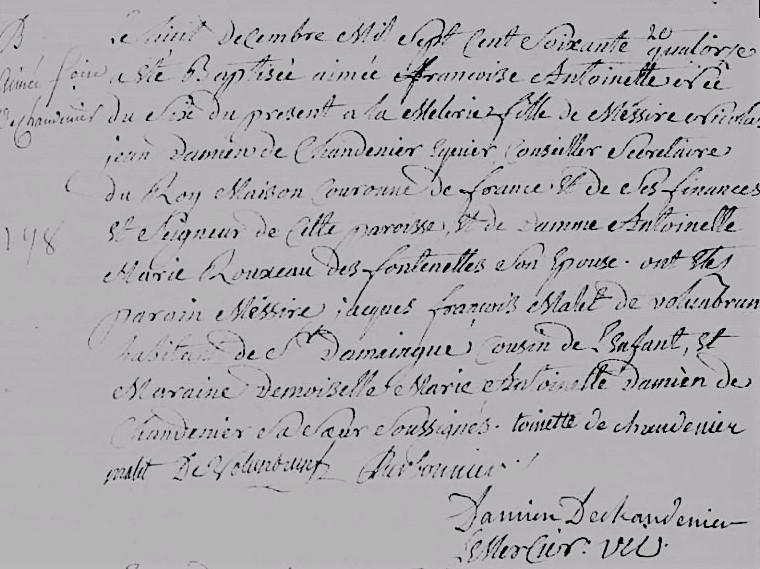 B
Aimée foise
De Chandenier
148
Le huit Decembre Mil Sept Cent Soixante et quatorze
a Eté Baptiseé aimée francoise Antoinette neé
du Six du present a la Melerie fille de Méssire Nicolas
jean Damien de Chandenier Equier Conseiller Secretaire
du Roy Maison Couronne de france et de Ses finances
Et Seigneur de Cette paroisse, Et de Damme Antoinette
Marie Rouxeau des fontenelles Son Epouse. ont Etés
parain Méssire jacques francois Malet de volunbrun
habitant de St Domaingue, Cousin de l'Enfant, Et
Maraine Demoiselle Marie Antoinette Damien de
Chandenier Sa Sœur Soussignés. toinette de chandenier
malet De Volunbrun
Damien Dechandenier
LeMercier. Vic.